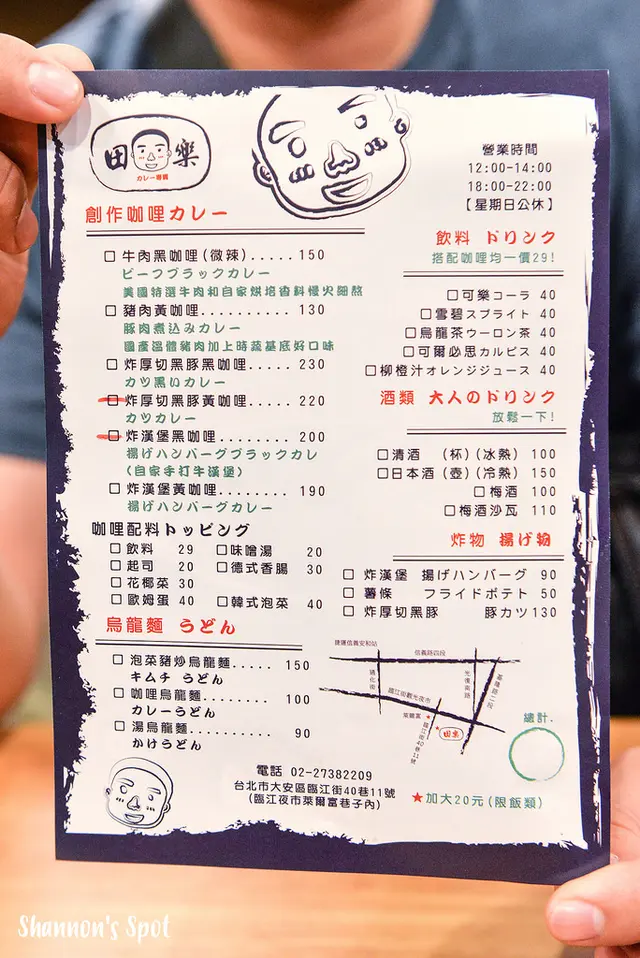 田樂
カレー專賣
創作咖哩カレー
牛肉黑咖哩(微辣).....150
ビーフブラックカレー
美國特選牛肉和自家烘培香料慢火細熬
豬肉黃咖哩..........130
豚肉煮込みカレー
國產溫體豬肉加上時蔬基底好口味
炸厚切黑豚黑咖哩......230
カツ黒いカレー
炸厚切黑豚黃咖哩......220
カツカレー
炸漢堡黑咖哩........200
揚げハンバーグブラックカレ
(自家手打牛漢堡)
炸漢堡黃咖哩........190
揚げハンバーグカレー
咖哩配料トッピング
飲料 29 味噌湯 20
起司 20 德式香腸 30
花椰菜 30
歐姆蛋 40 韓式泡菜 40
烏龍麵 うどん
泡菜豬炒烏龍麵..... 150
キムチ うどん
咖哩烏龍麵........ 100
カレーうどん
湯烏龍麵.......... 90
かけうどん
營業時間
12:00-14:00
18:00-22:00
【星期日公休】
飲料 ドリンク
搭配咖哩均一價29!
可樂コーラ 40
雪碧スプライト 40
烏龍茶ウーロン茶 40
可爾必思カルピス 40
柳橙汁オレンジジュース 40
酒類 大人のドリンク
放鬆一下!
清酒 (杯)(冰熱) 100
日本酒(壺)(冷熱) 150
梅酒 100
梅酒沙瓦 110
炸物 揚げ物
炸漢堡 揚げハンバーグ 90
薯條 フライドポテト 50
炸厚切黑豚 豚カツ130
捷運信義安和站
信義路四段
通化街
光復南路
基隆路二段
臨江街觀光夜市
萊爾富
臨江街40巷11號
田樂
總計.
電話 02-27382209
台北市大安區臨江街40巷11號
(臨江夜市萊爾富巷子內)
★加大20元(限飯類)
Shannon's Spot